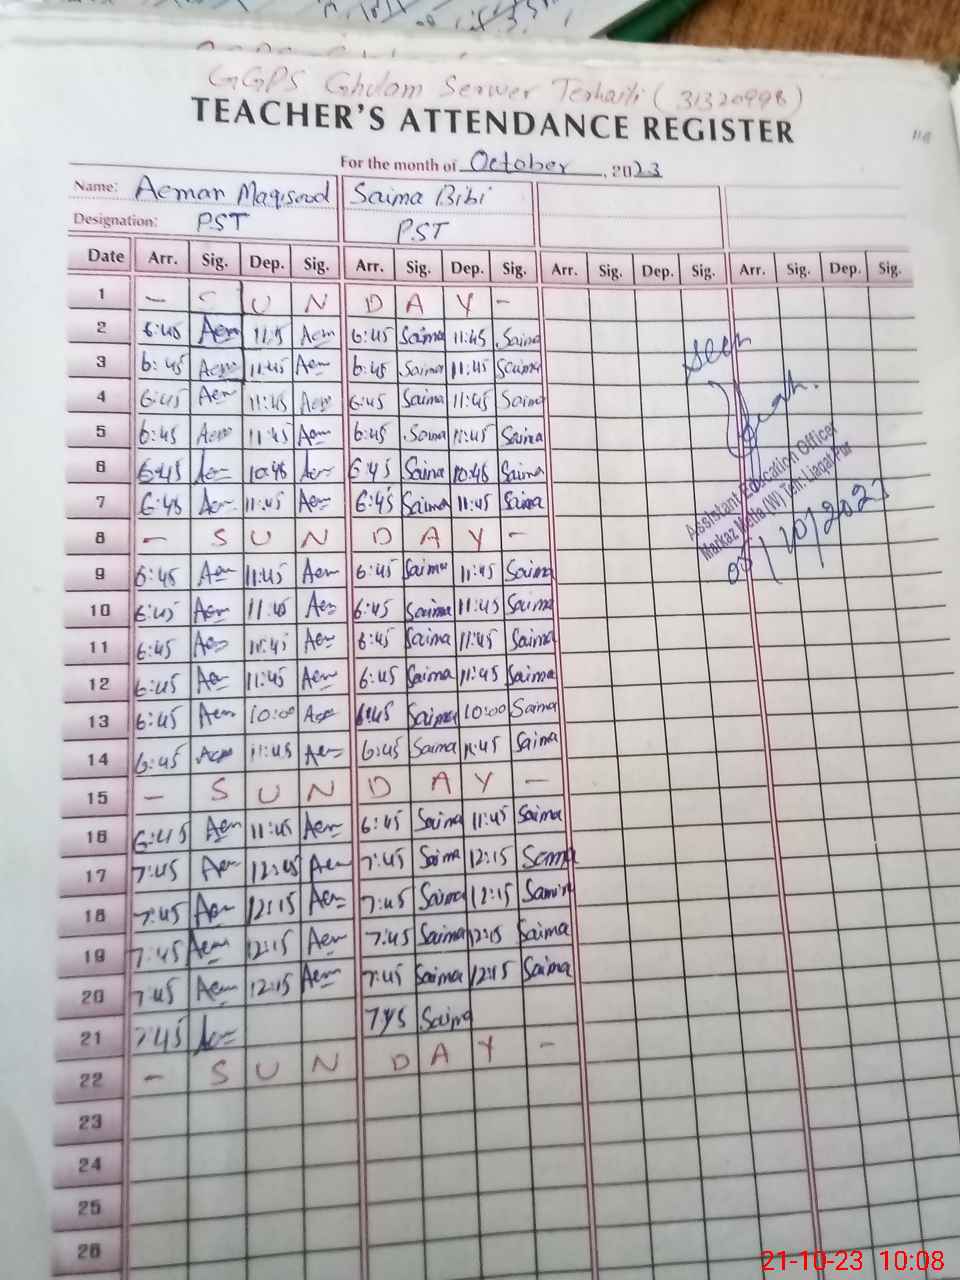 GGPS Ghulam Serwer Terhaiti (31320998)
TEACHER'S ATTENDANCE REGISTER
For the month of October, 2023
Name: Aeman Maqsood Saima Bibi
Designation: PST PST
Date Arr. Sig. Dep. Sig. Arr. Sig. Dep. Sig. Arr. Sig. Dep. Sig. Arr. Sig. Dep. Sig.
1 - S U N D A Y -
2 6:45 Aem 11:45 Aem 6:45 Saima 11:45 Saima
3 6:45 Aem 11:45 Aem 6:45 Saima 11:45 Saima
4 6:45 Aem 11:45 Aem 6:45 Saima 11:45 Saima
5 6:45 Aem 11:45 Aem 6:45 Saima 11:45 Saima
6 6:45 Aem 10:45 Aem 6:45 Saima 10:45 Saima
7 6:45 Aem 11:45 Aem 6:45 Saima 11:45 Saima
8 - S U N D A Y -
9 6:45 Aem 11:45 Aem 6:45 Saima 11:45 Saima
10 6:45 Aem 11:45 Aem 6:45 Saima 11:45 Saima
11 6:45 Aem 11:45 Aem 6:45 Saima 11:45 Saima
12 6:45 Aem 11:45 Aem 6:45 Saima 11:45 Saima
13 6:45 Aem 10:00 Aem 6:45 Saima 10:00 Saima
14 6:45 Aem 11:45 Aem 6:45 Saima 11:45 Saima
15 - S U N D A Y -
16 6:45 Aem 11:45 Aem 6:45 Saima 11:45 Saima
17 7:45 Aem 12:45 Aem 7:45 Saima 12:15 Saima
18 7:45 Aem 12:15 Aem 7:45 Saima 12:15 Saima
19 7:45 Aem 12:15 Aem 7:45 Saima 12:15 Saima
20 7:45 Aem 12:15 Aem 7:45 Saima 12:15 Saima
21 7:45 Aem 7:45 Saima
22 - S U N D A Y -
23
24
25
26
Seen
Assistant Education Officer
Markaz (W) Teh: Liaqat Pur
/10/2023
21-10-23 10:08